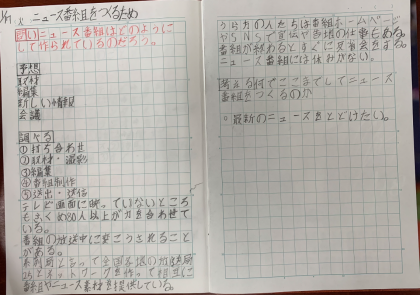 ニュース番組をつくるため
問い ニュース番組はどのように
して作られているのだろう。
予想
取材
編集
新しい情報
会議
調べる
①打ち合わせ
②取材・撮影
③編集
④番組制作
⑤送出・送信
テレビ画面に映っていないところ
もふくめ80人以上が力を合わせて
いる。
番組の放送中に変こうされること
がある。
番組やニュース素材を提供している。
うら方の人たちは番組ホームページ
やSNSで宣伝や
番組が終わるとすぐに反省会をする。
ニュース番組には休みがない。
考える 何でここまでしてニュース
番組をつくるのか
最新のニュースをとどけたい。